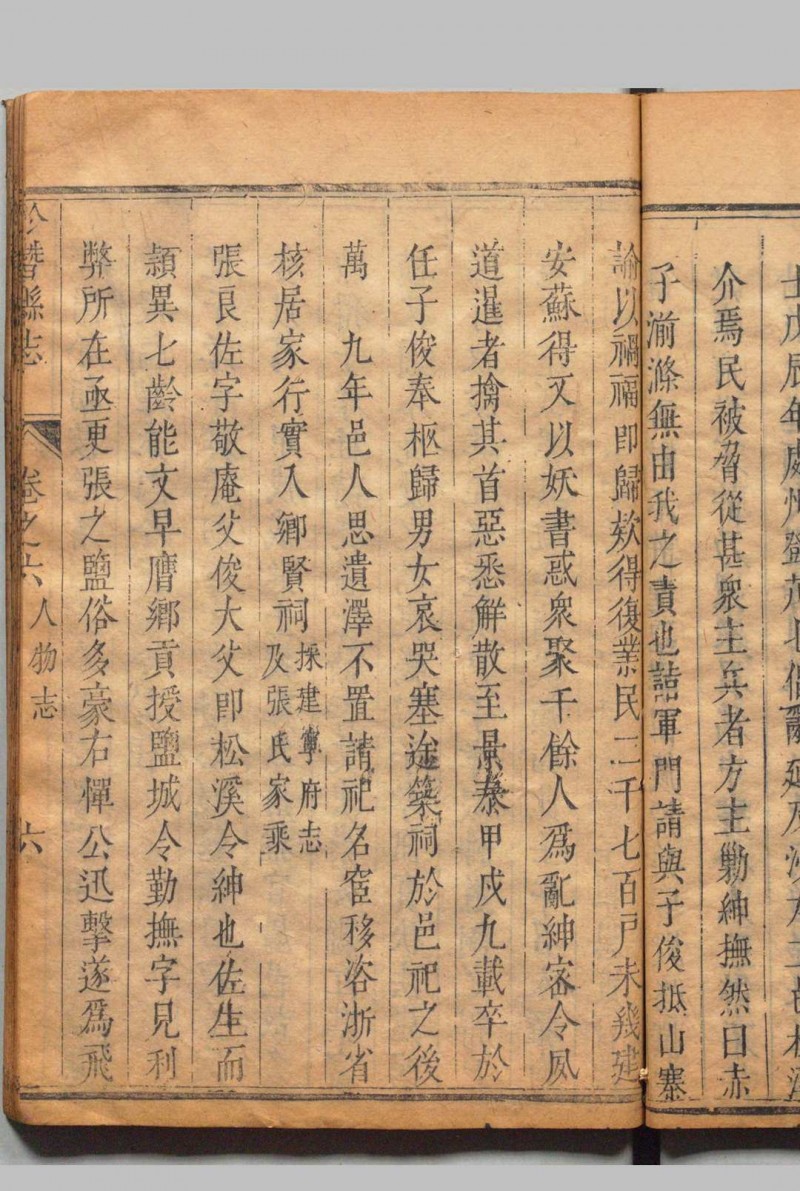 士戊辰年處州鄧茂七倡亂延及沙尤二邑松溪
介焉民被脅從甚衆主兵者方主勦紳撫然曰赤
子湔滌無由我之責也詣軍門請與子俊抵山寨
諭以禍福即歸欵得復業民二千七百戸未幾建
安蘇得又以妖書惑衆聚千餘人爲亂紳密令夙
道暹者擒其首惡悉解散至景泰甲戍九載卒於
任子俊奉柩歸男女哀哭塞途築祠於邑祀之後
萬　九年邑人思遺澤不置請祀名宦移咨浙省
核居家行實入鄉賢祠採建寧府志
及張氏家乘
張良佐字敬庵父俊大父即松溪令紳也佐生而
頴異七齡能文早膺鄉貢授鹽城令勤撫字見利
弊所在亟更張之鹽俗多豪右憚公迅擊遂爲飛
潛縣志　卷之六　人物志　六